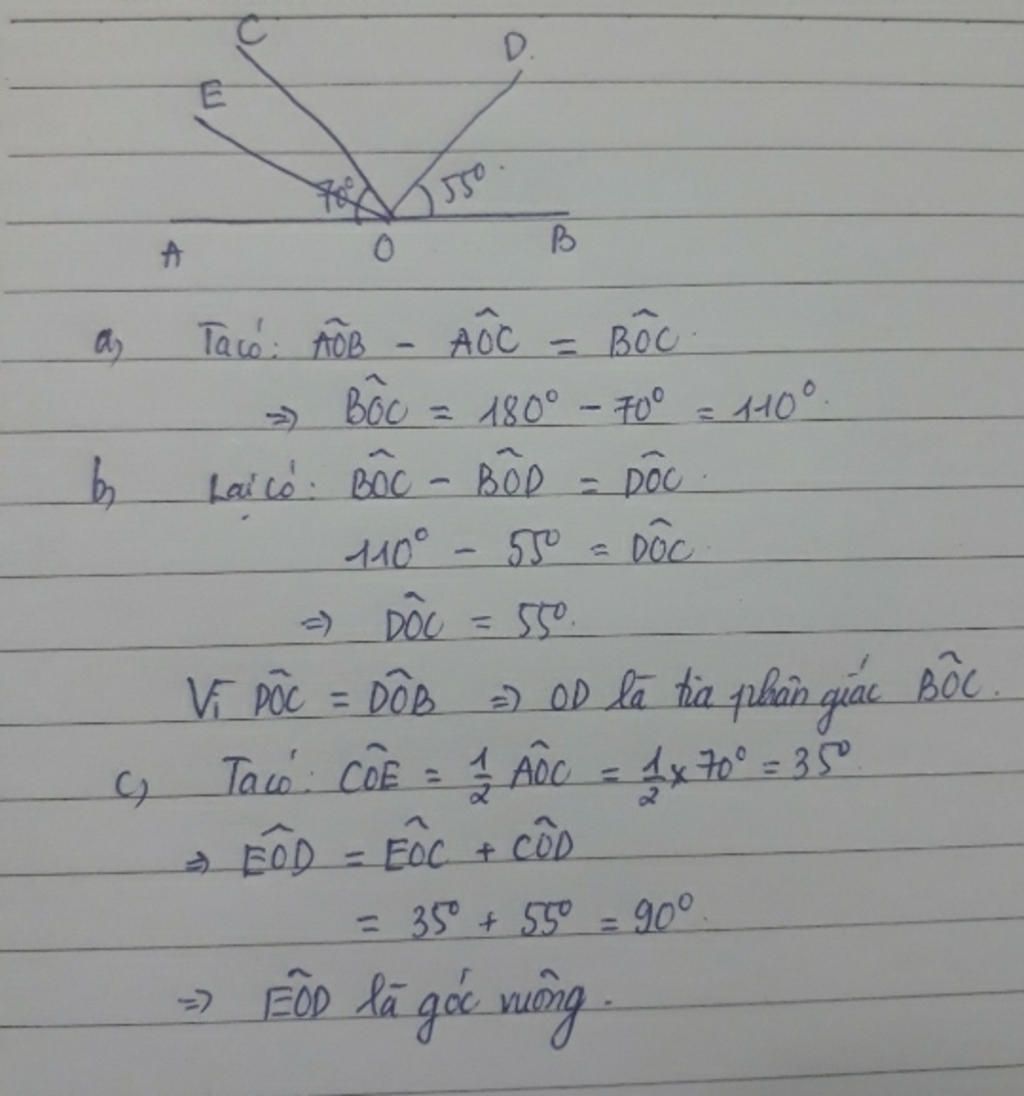 C
D.
E
70°
55°
A
O
B
a, Ta có: AÔB - AÔC = BÔC.
=> BÔC = 180° - 70° = 110°.
b, Lại có: BÔC - BÔD = DÔC.
110° - 55° = DÔC.
=> DÔC = 55°.
Vì DÔC = DÔB => OD là tia phân giác BÔC.
c, Ta có: CÔE = 1/2 AÔC = 1/2 x 70° = 35°.
=> EÔD = EÔC + CÔD
= 35° + 55° = 90°.
=> EÔD là góc vuông.